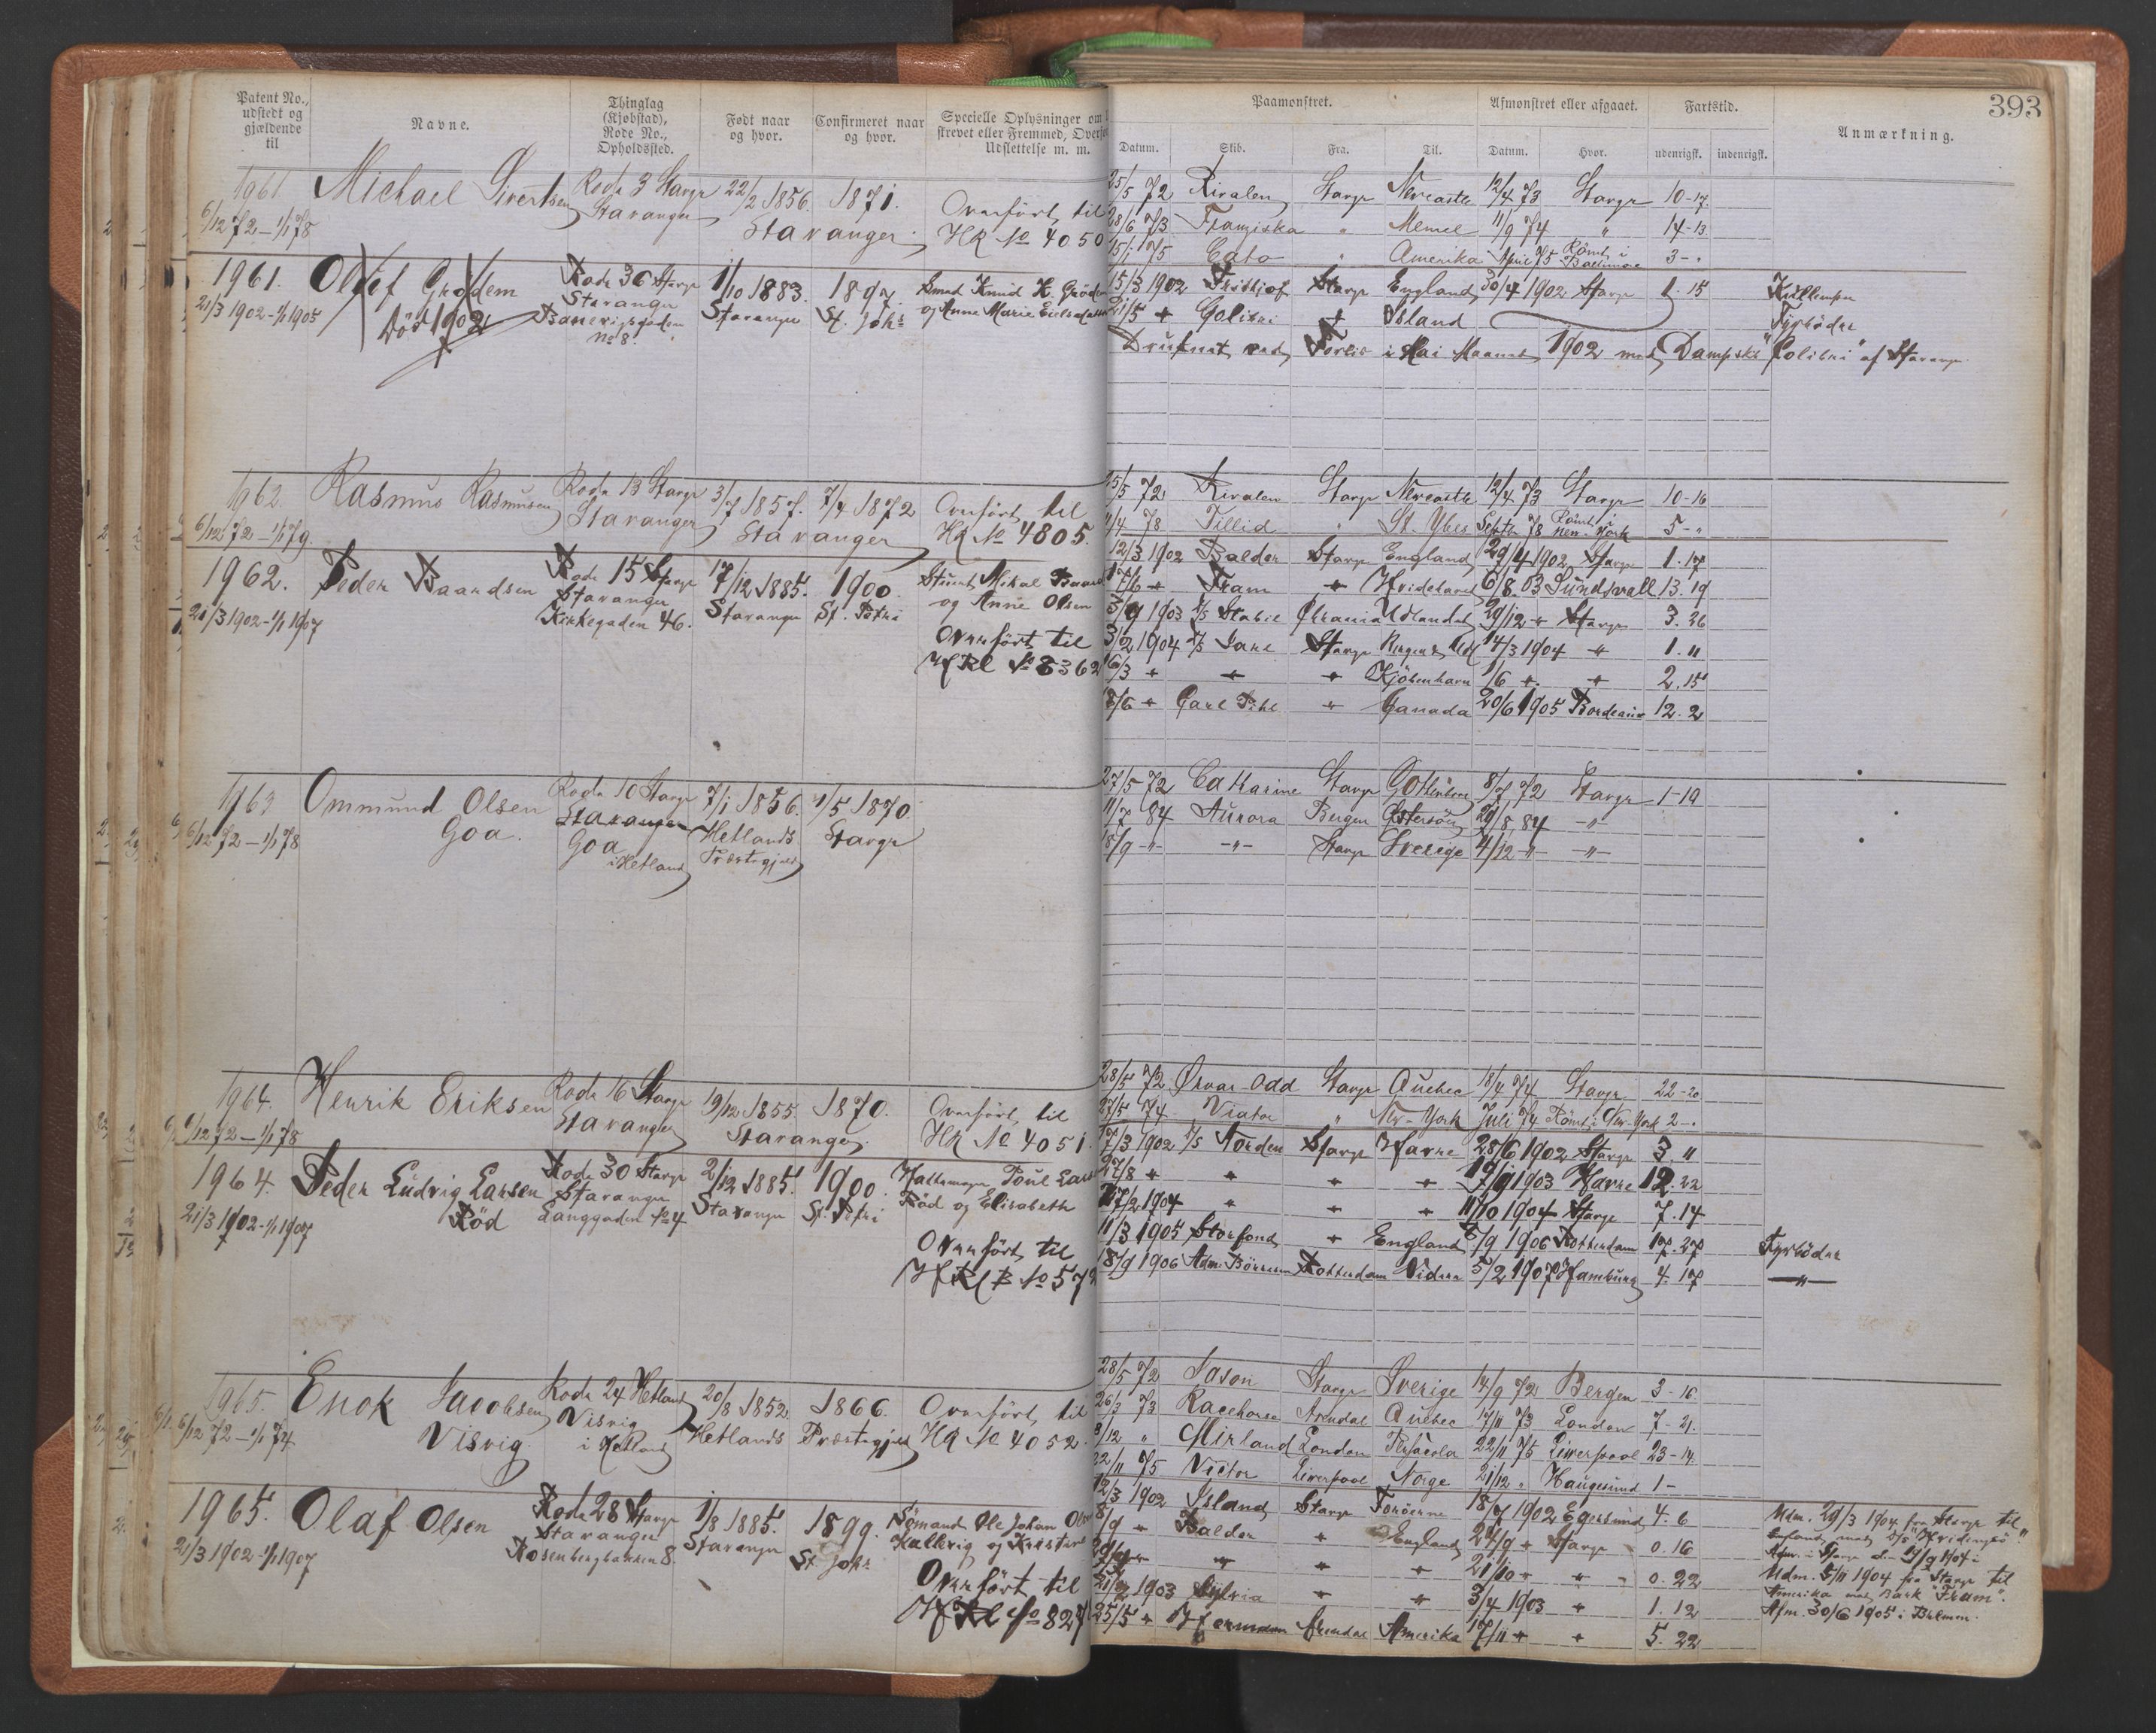 393
Patent No., udstedt og gjældende til
Navne.
Thinglag (Kjøbstad), Rode No., Opholdssted.
Født naar og hvor.
Confirmeret naar og hvor.
Specielle Oplysninger om
strevet eller Fremmed,
Udslettelse m. m.
Paamønstret.
Afmønstret eller afgaaet.
Fartstid.
Anmærkning.
Datum. Skib. Fra. Til. Datum. Hvor. udenrigsk. indenrigsk.
1961 Michael Sivertsen Rode 3 Stavgr 22/2 1856. 1871.
6/12 72 – 1/1 78 Stavanger Stavanger Overført til
HR No 4050
25/5 72 Rivalen Stavgr Newcastle 12/4 73 Stavgr 10-17
28/6 73 Franziska " Memel 11/9 74 " 14-13
15/1 75 Cato " Amerika April 75 Rømt i Baltimore 3-"
1961. Oluf Grødem Rode 36 Stavgr 1/10 1883. 1897. Smed Knud H. Gröd
21/3 1902 - 1/1 1905 Död 1902 Stavanger Stavanger St. Johs og Anne Marie
No 8.
15/3 1902 Fridtjof Stavgr England 30/4 1902 Stavgr 1.15
21/5 " Colibri " Island Fyrböder
Druknet ved Forlis i Mai Maaned 1902 med Dampsk "Colibri" af Stavanger
1962. Rasmus Rasmusen Rode 13 Stavgr 3/7 1857. 7/4 1872 Overført til
6/12 72 – 1/1 79. Stavanger Stavanger HR No 4805.
25/5 72 Rivalen Stavgr Newcastle 12/4 73 Stavgr 10-16
4/4 78 Tillid " St. Ybes Septb 78 Rømt New-York 5-"
1962. Peder Baardsen Rode 15 Stavgr 17/12 1885. 1900
21/3 1902 - 1/1 1907 Stavanger Stavanger St. Petri og Anne Olsen
Kirkegaden 46.
Overført til
HRl No 8362
12/3 1902 Balder Stavgr England 29/4 1902 Stavgr 1.17
7/6 " Fram " Hvidehavet 6/8.03 Sundsvall 13.19
3/9 1903 Stabil Udlandet 29/12 " Stavgr 3.26
3/2 1904 Jarl Stavgr 14/3 1904 " 1.11
16/3 " " " Kjöbenhavn 1/6 " " 2.15
18/6 " Carl Pihl " Canada 20/6 1905 Bordeaux 12.2
1963 Ommund Olsen Goa. Rode 10 Stavgr 7/1 1856. 1/5 1870.
6/12 72 – 1/1 78 Stavanger Goa i Hetland Hetlands Præstegjeld Stavgr
27/5 72 Catharine Stavgr Gothenborg 8/7 72 Stavgr 1-19
11/7 84 Aurora Bergen Østersöen 29/8 84 -"-
18/9 -"- -"- Stavgr Sverige 4/12 -"- -"-
1964. Henrik Eriksen Rode 16 Stavgr 19/12 1855. 1870. Overført til
6/12 72 – 1/1 78 Stavanger Stavanger. HR No 4051.
28/5 72 Ørvar-Odd Stavgr Quebec 18/4 74 Stavgr 22-20
27/5 74 Viator " New-York Juli 74 Rømt i New-York 2-"
1964. Peder Ludvig Larsen Röd Rode 30 Stavgr 2/12 1885. 1900.
21/3 1902 - 1/1 1907 Stavanger Langgaden No 4 Stavanger St. Petri Röd og Elisabeth
Overført til
HRl B No 57
17/3 1902 Norden Stavgr Havre 28/6 1902 Stavgr 3.11
27/8 " " " " 19/9 1903 Havre 12.22
27/2 1904 " " " 11/10 1904 Stavgr 7.14
11/3 1905 Storfond " England 7/9 1906 Rotterdam 17.27 Fyrböder
18/9 1906 Adm. Börresen Rotterdam Videre 5/2 1907 Hamburg 4.17 -"-
1965. Enok Jacobsen Visvig. Rode 24 Hetland 20/8 1852. 1866. Overført til
6/12 72 – 1/1 74 Visvig i Hetland Hetlands Præstegjeld HR No 4052.
28/5 72 Jason Stavgr Sverige 14/9 72 Bergen 3-16.
26/3 73 Racehorse Arendal Quebec 17/11 73 London 7-21.
8/12 " Mirland London Pensacola 22/11 75 Liverpool 23-14.
22/11 75 Victor Liverpool Norge 21/12 " Haugesund 1-
1965. Olaf Olsen Rode 28 Stavgr 1/8 1885. 1899. Sömand Ole Johan
21/3 1902 - 1/1 1907 Stavanger Rosenbergbakken 8. Stavanger St. Johs Kallevig og
Overført til
HRl No 827
12/3 1902 Island Stavgr Feröerne 18/7 1902 Egersund 4.6
8/9 " Balder " England 24/9 " Stavgr 0.16
" " " 21/10 " " 0.22
21/2 1903 Sylvia " " 3/4 1903 " 1.12
25/5 " Hermann Arendal Amerika 17/11 " " 5.22
Udm. 29/3 1904 fra Stavgr til
England med
Udm. 5/11 1904 fra Stavgr til
Amerika med Bark "Fram".
Afm. 30/6 1905 i Bremen.